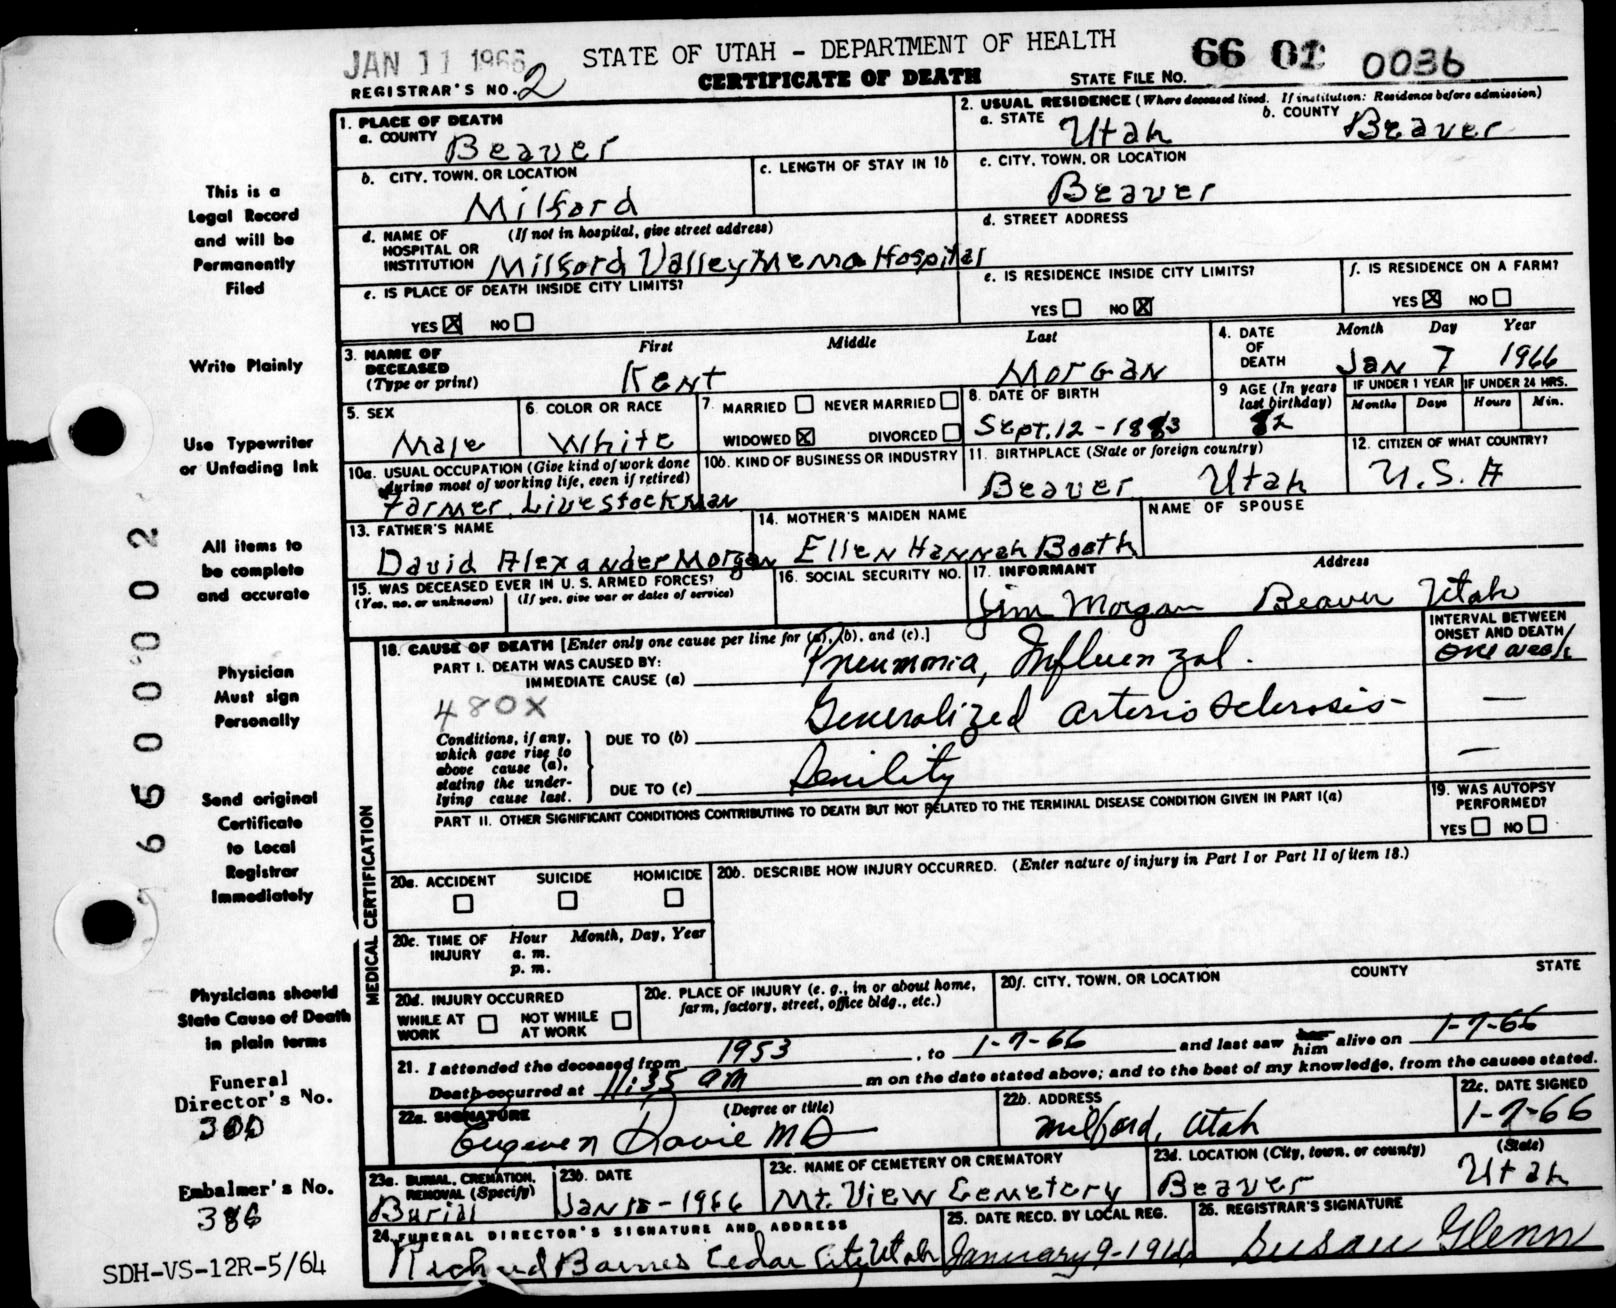 JAN 11 1966
STATE OF UTAH - DEPARTMENT OF HEALTH
66 01 0036
REGISTRAR'S NO. 2
CERTIFICATE OF DEATH
STATE FILE NO.
1. PLACE OF DEATH
a. COUNTY Beaver
2. USUAL RESIDENCE (Where deceased lived. If institution: Residence before admission)
a. STATE Utah
b. COUNTY Beaver
b. CITY, TOWN, OR LOCATION
Milford
c. LENGTH OF STAY IN 1b
c. CITY, TOWN, OR LOCATION
Beaver
d. NAME OF HOSPITAL OR INSTITUTION (If not in hospital, give street address)
Milford Valley Memo Hospital
d. STREET ADDRESS
e. IS PLACE OF DEATH INSIDE CITY LIMITS?
YES ☒ NO ☐
e. IS RESIDENCE INSIDE CITY LIMITS?
YES ☐ NO ☒
f. IS RESIDENCE ON A FARM?
YES ☒ NO ☐
3. NAME OF DECEASED (Type or print)
First Middle Last
Kent Morgan
4. DATE OF DEATH
Month Day Year
Jan 7 1966
5. SEX
Male
6. COLOR OR RACE
White
7. MARRIED ☐ NEVER MARRIED ☐
WIDOWED ☒ DIVORCED ☐
8. DATE OF BIRTH
Sept. 12 - 1883
9 AGE (In years last birthday)
82
IF UNDER 1 YEAR
Months Days
IF UNDER 24 HRS.
Hours Min.
10a. USUAL OCCUPATION (Give kind of work done during most of working life, even if retired)
Farmer, Livestockman
10b. KIND OF BUSINESS OR INDUSTRY
11. BIRTHPLACE (State or foreign country)
Beaver Utah
12. CITIZEN OF WHAT COUNTRY?
U.S.A
13. FATHER'S NAME
David Alexander Morgan
14. MOTHER'S MAIDEN NAME
Ellen Hannah Booth
NAME OF SPOUSE
15. WAS DECEASED EVER IN U. S. ARMED FORCES?
(Yes, no, or unknown) (If yes, give war or dates of service)
16. SOCIAL SECURITY NO.
17. INFORMANT Address
Jim Morgan Beaver Utah
MEDICAL CERTIFICATION
18. CAUSE OF DEATH [Enter only one cause per line for (a), (b), and (c).]
INTERVAL BETWEEN ONSET AND DEATH
PART I. DEATH WAS CAUSED BY:
IMMEDIATE CAUSE (a) Pneumonia, Influenzal.
One week
480X
Conditions, if any, which gave rise to above cause (a), stating the underlying cause last.
DUE TO (b) Generalized arteriosclerosis -
DUE TO (c) Senility
PART II. OTHER SIGNIFICANT CONDITIONS CONTRIBUTING TO DEATH BUT NOT RELATED TO THE TERMINAL DISEASE CONDITION GIVEN IN PART I(a)
19. WAS AUTOPSY PERFORMED?
YES ☐ NO ☐
20a. ACCIDENT ☐ SUICIDE ☐ HOMICIDE ☐
20b. DESCRIBE HOW INJURY OCCURRED. (Enter nature of injury in Part I or Part II of item 18.)
20c. TIME OF INJURY Hour Month, Day, Year
a. m.
p. m.
20d. INJURY OCCURRED
WHILE AT WORK ☐ NOT WHILE AT WORK ☐
20e. PLACE OF INJURY (e. g., in or about home, farm, factory, street, office bldg., etc.)
20f. CITY, TOWN, OR LOCATION COUNTY STATE
21. I attended the deceased from 1953, to 1-7-66 and last saw her him alive on 1-7-66
Death occurred at 11:35 am m on the date stated above; and to the best of my knowledge, from the causes stated.
22a. SIGNATURE (Degree or title)
22b. ADDRESS
Milford, Utah
22c. DATE SIGNED
1-7-66
23a. BURIAL, CREMATION, REMOVAL (Specify)
Burial
23b. DATE
Jan 10 - 1966
23c. NAME OF CEMETERY OR CREMATORY
Mt. View Cemetery
23d. LOCATION (City, town, or county) (State)
Beaver Utah
24. FUNERAL DIRECTOR'S SIGNATURE AND ADDRESS
Richard Barnes Cedar City Utah
25. DATE RECD. BY LOCAL REG.
January 9 - 1966
26. REGISTRAR'S SIGNATURE
Susan Glenn
This is a
Legal Record
and will be
Permanently
Filed
Write Plainly
Use Typewriter
or Unfading Ink
All items to
be complete
and accurate
Physician
Must sign
Personally
Send original
Certificate
to Local
Registrar
Immediately
Physicians should
State Cause of Death
in plain terms
Funeral
Director's No.
300
Embalmer's No.
386
SDH-VS-12R-5/64